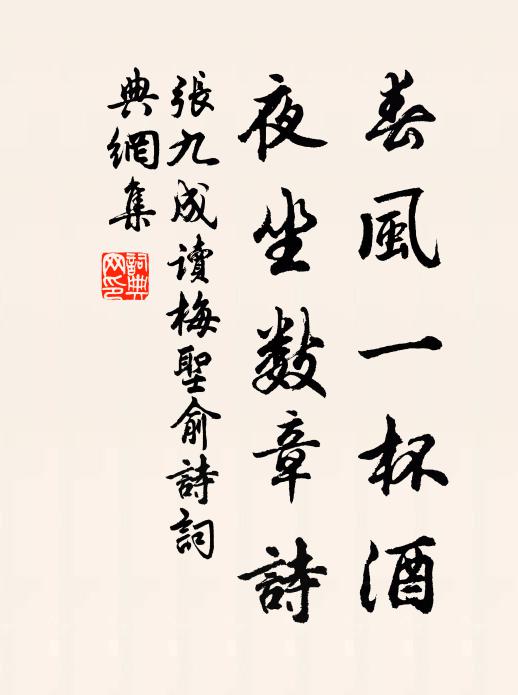 春風一杯酒
夜坐數章詩
張九成讀梅聖俞詩詞
典網集
詞典网印